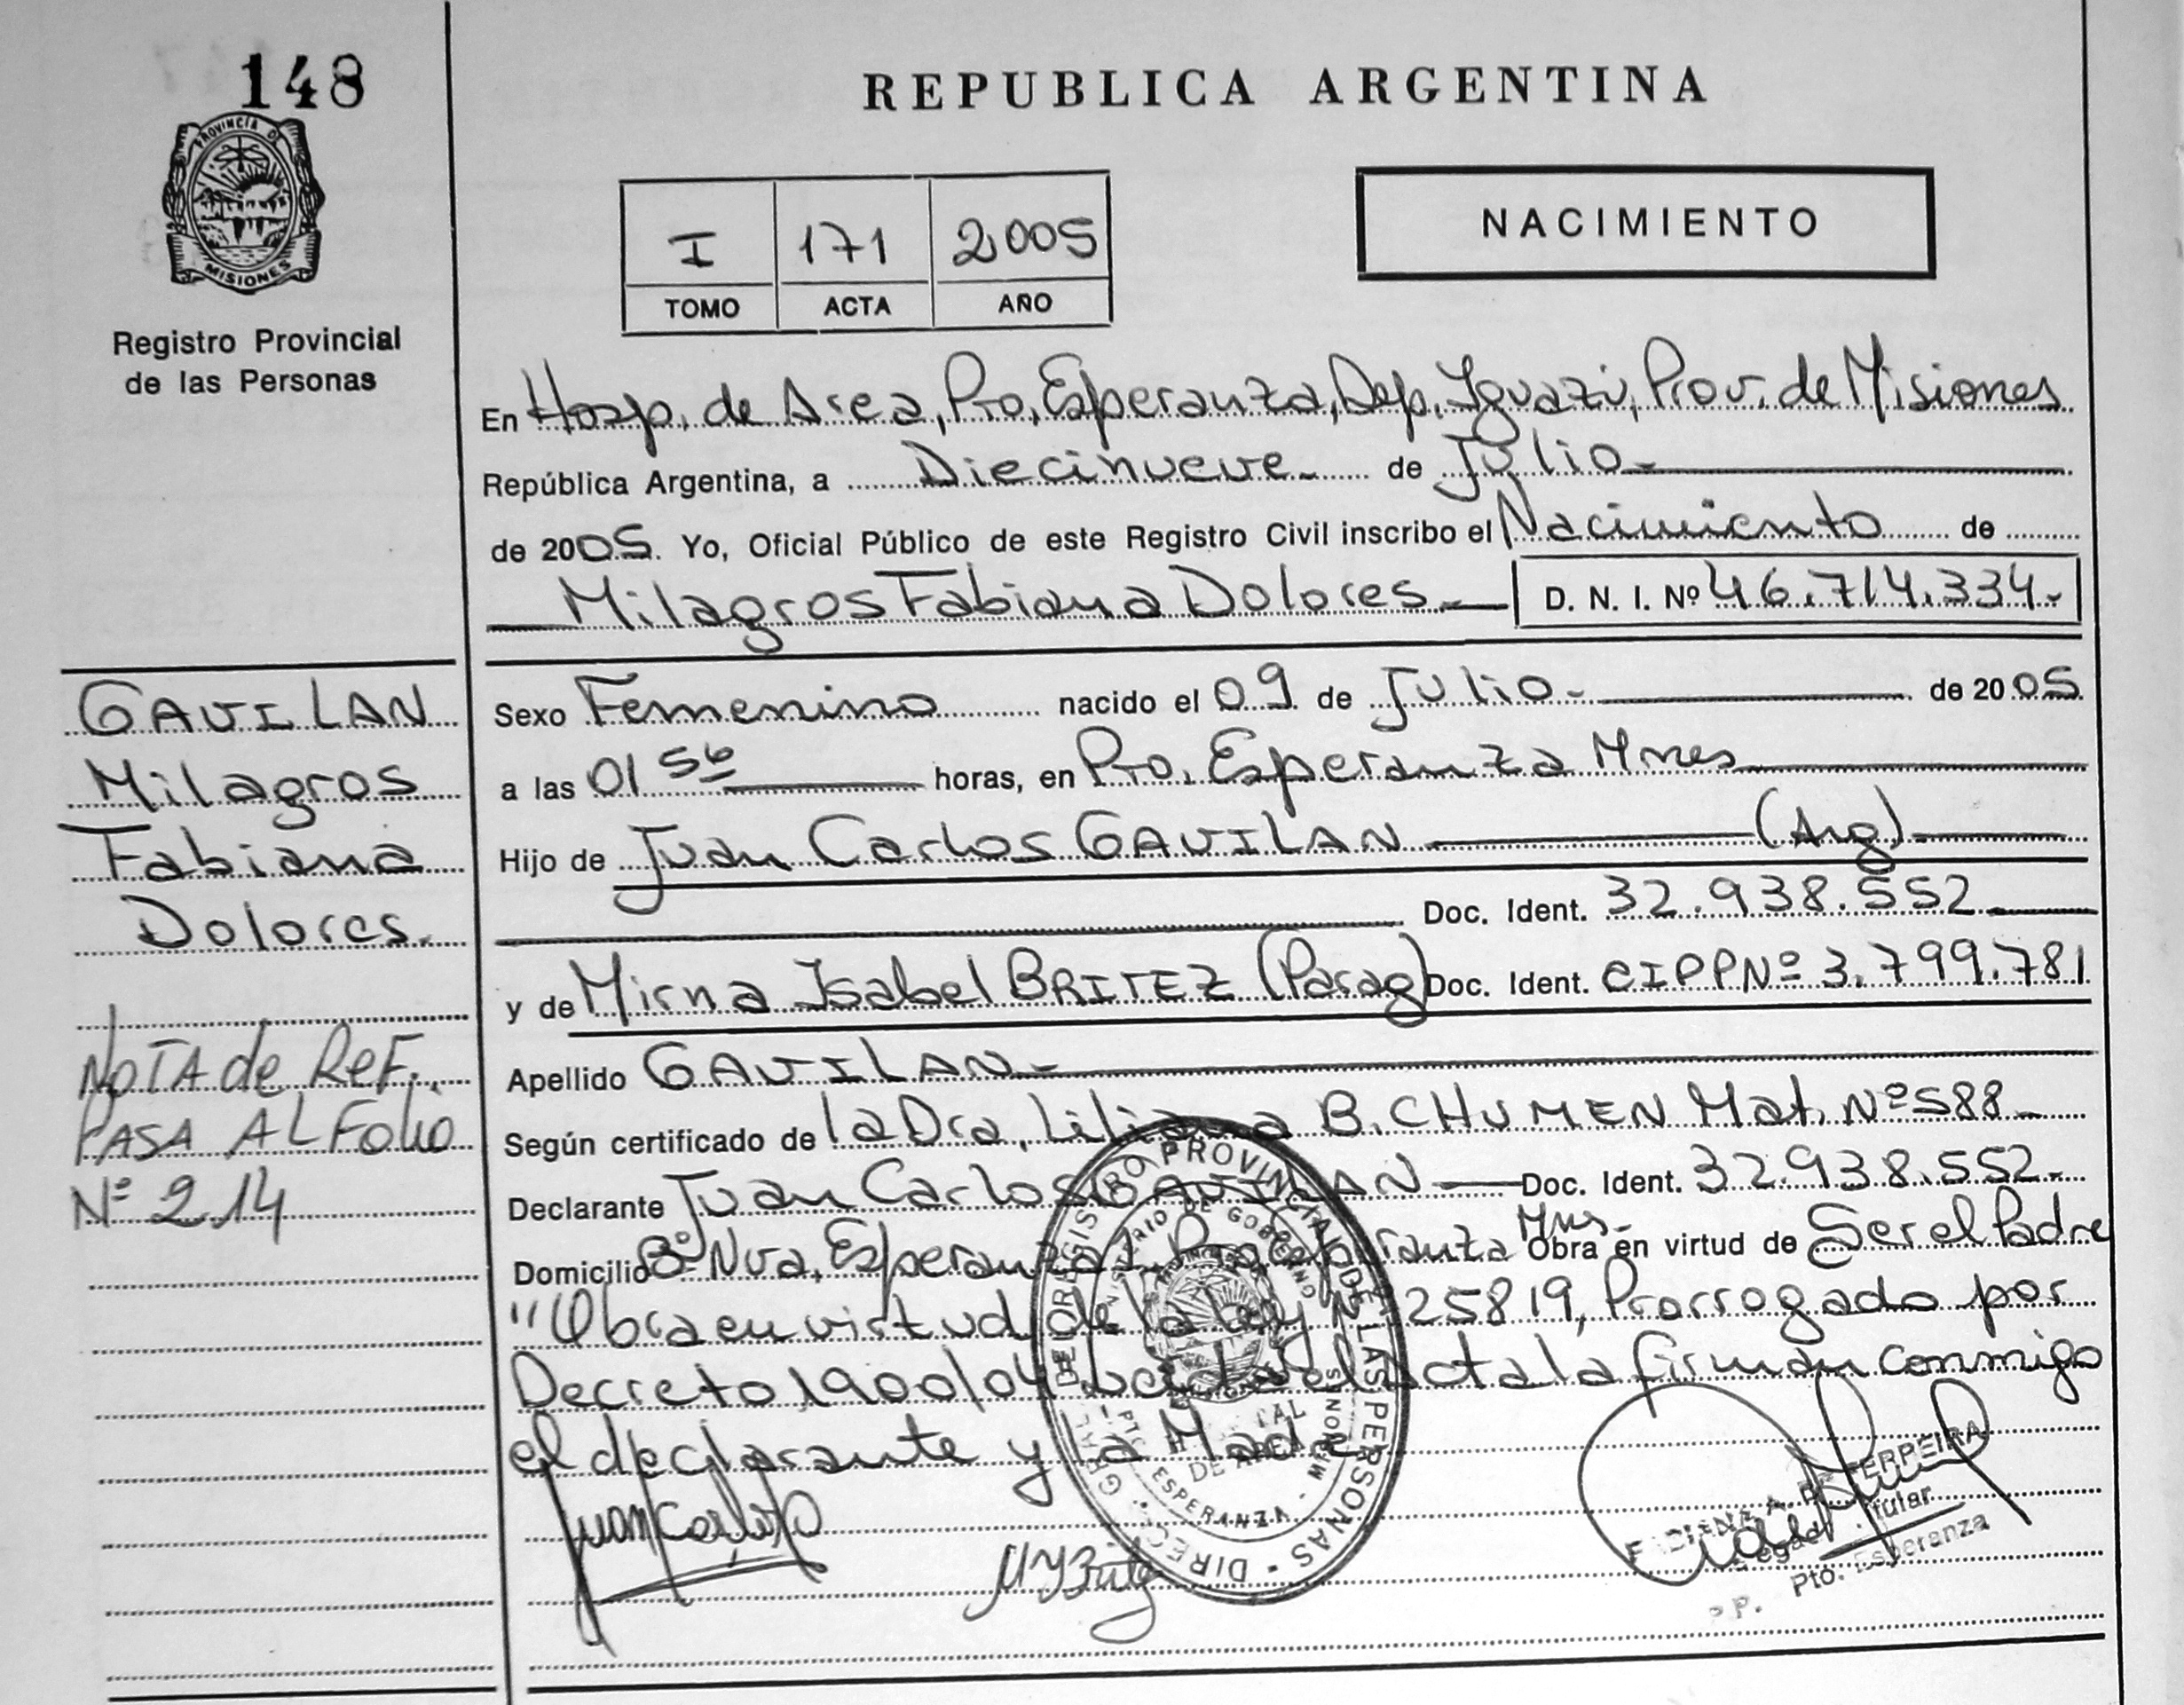 148
PROVINCIA DE
MISIONES
Registro Provincial
de las Personas
REPUBLICA ARGENTINA
I 171 2005
TOMO ACTA AÑO
NACIMIENTO
En Hosp. de Area, Pto. Esperanza, Dep. Iguazú, Prov. de Misiones
República Argentina, a Diecinueve de Julio
de 2005. Yo, Oficial Público de este Registro Civil inscribo el Nacimiento de
Milagros Fabiana Dolores D. N. I. Nº 46.714.334.-
GAVILAN
Milagros
Fabiana
Dolores.
NOTA de ReF.
PASA AL Folio
Nº 214
Sexo Femenino nacido el 09 de Julio.- de 2005
a las 01 56 horas, en Pto. Esperanza Mnes
Hijo de Juan Carlos GAVILAN (Arg).
Doc. Ident. 32.938.552
y de Mirna Isabel BRITEZ (Parag) Doc. Ident. CIPPNº 3.799.781
Apellido GAVILAN.-
Según certificado de la Dra. Liliana B. CHUMEN Mat. Nº 588
Declarante Juan Carlos GAVILAN Doc. Ident. 32.938.552.-
Domicilio Bº Nva. Esperanza Pto. Esperanza Mnes.- Obra en virtud de Ser el Padre
"Obra en virtud de la Ley Nº 25819, Prorrogado por
Decreto 1900/04 Acta la firman conmigo
el declarante y la Madre
Juan Carlos
DIRECC. GRAL. DEL REGISTRO PROVINCIAL DE LAS PERSONAS
MINISTERIO DE GOBIERNO
DE AREA
PTO. ESPERANZA - MISIONES
FERREIRA
Titular
Pto. Esperanza